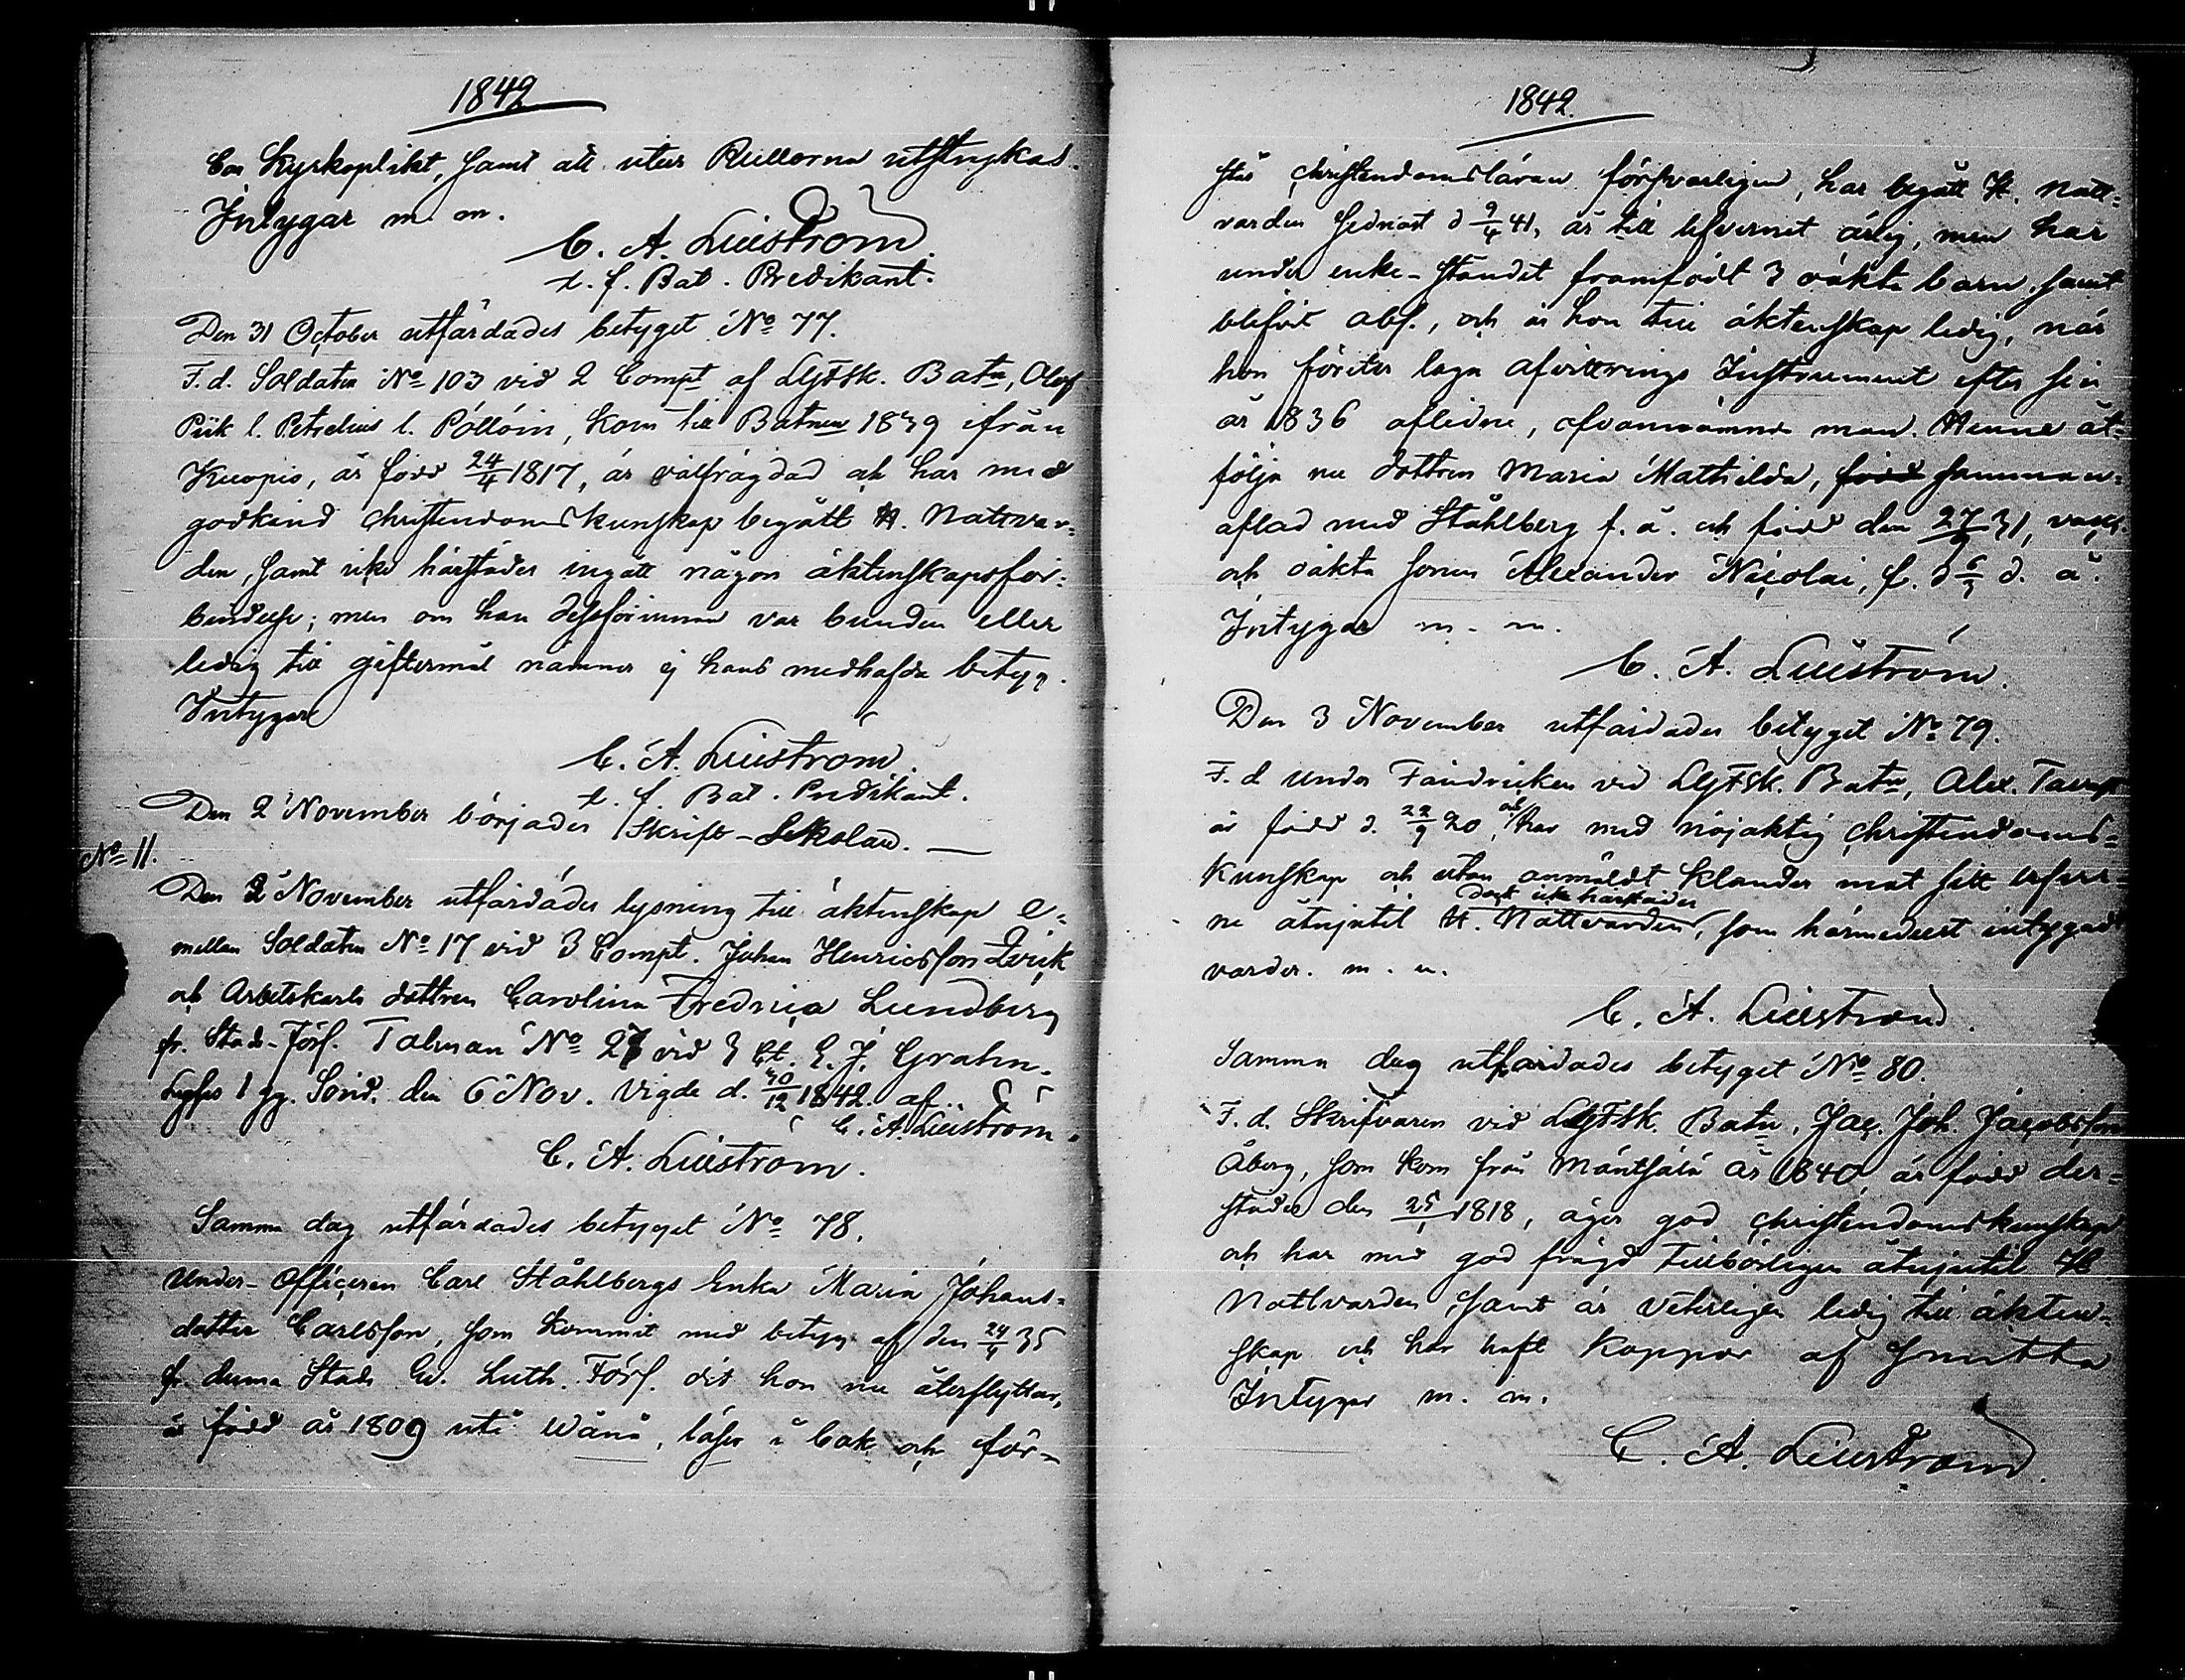 1842
Con Kyrkoplikt, samt att utur Rullorna utstrykas.
Intygar m. m.
C. A. Liliistrom
t. f. Bat. Predikant.
Den 31 October utfärdades betyget No 77.
F. d. Soldaten No 103 vid 2 Compt af LgFsk. Batn, Olof
Piik l. Petrelius l. Pöllöin, kom till Batnen 1839 ifrån
Kuopio, är född 24/4 1817, är välfrägdad och har med
godkänd christendomskunskap begått H. Nattvar=
den, samt icke härstädes ingått någon äktenskapsför=
bindelse; men om han dessförinnan var bunden eller
ledig till giftermål nämner ej hans medhafda betyg.
Intygar
C. A. Liliistrom.
t. f. Bat. Predikant.
Den 2 November börjades Skrift-Skolan. —
No 11.
Den 2 November utfärdades lysning till äktenskap e=
mellan Soldaten No 17 vid 3 Compt. Johan Henricsson Qvick
och Arbetskarls dottren Carolina Fredrica Lundberg
fr. Stads-Förs. Tolman No 27 vid 3 Ct. E. J. Grahn.
Lystes 1 gg. Sönd. den 6 Nov. Vigde d. 30/12 1842 af
C. A. Liliistrom.
C. A. Liliistrom.
Samma dag utfärdades betyget No 78.
Under-Officeren Carl Ståhlbergs Enka Maria Johans=
dotter Carlsson, som kommit med betyg af den 24/4 35
fr. denna Stads Ev. Luth. Förs. dit hon nu återflyttar,
är född år 1809 uti Wånå, läser i bok och för-
1842.
står christendomsläran försvarligen, har begått H. Natt=
varden sednast d 9/4 41, är till lefvernet ärlig, men har
under enke-ståndet framfödt 3 oäkta barn, samt
blifvit abs., och är hon till äktenskap ledig, när
hon företer laga afvittrings Instrument efter sin
år 1836 aflidne, ofvannämnde man. Henne åt=
följa nu dottren Maria Mathilda, född samman=
aflad med Ståhlberg f. ä. och född den 27 31, vacc.
och oäkta sonen Alexander Nicolai, f. d 6/3 d. å.
Intygar m. m.
C. A. Liliistrom.
Den 3 November utfärdades betyget No 79.
F. d Under Fändricken vid LgFsk. Batn, Alex. Tavast
är född d. 22/9 20, och har med nöjaktig christendoms=
kunskap och utan anmäldt klander mot sitt lefver=
dock icke härstädes
ne åtnjutit H. Nattvarden, som härmedelst intygadt
varder. m. m.
C. A. Liliistrom.
Samma dag utfärdades betyget No 80.
F. d. Skrifvaren vid LgFsk. Batn, Jac. Joh. Jacobsson
Åberg, som kom från Mäntsälä år 1840, är född der=
städes den 25/1 1818, äger god christendomskunskap
och har med god frägd tillbörligen åtnjutit H
Nattvarden, samt är veterligen ledig till äkten=
skap och har haft koppor af smitta
Intygar m. m.
C. A. Liliistrom.